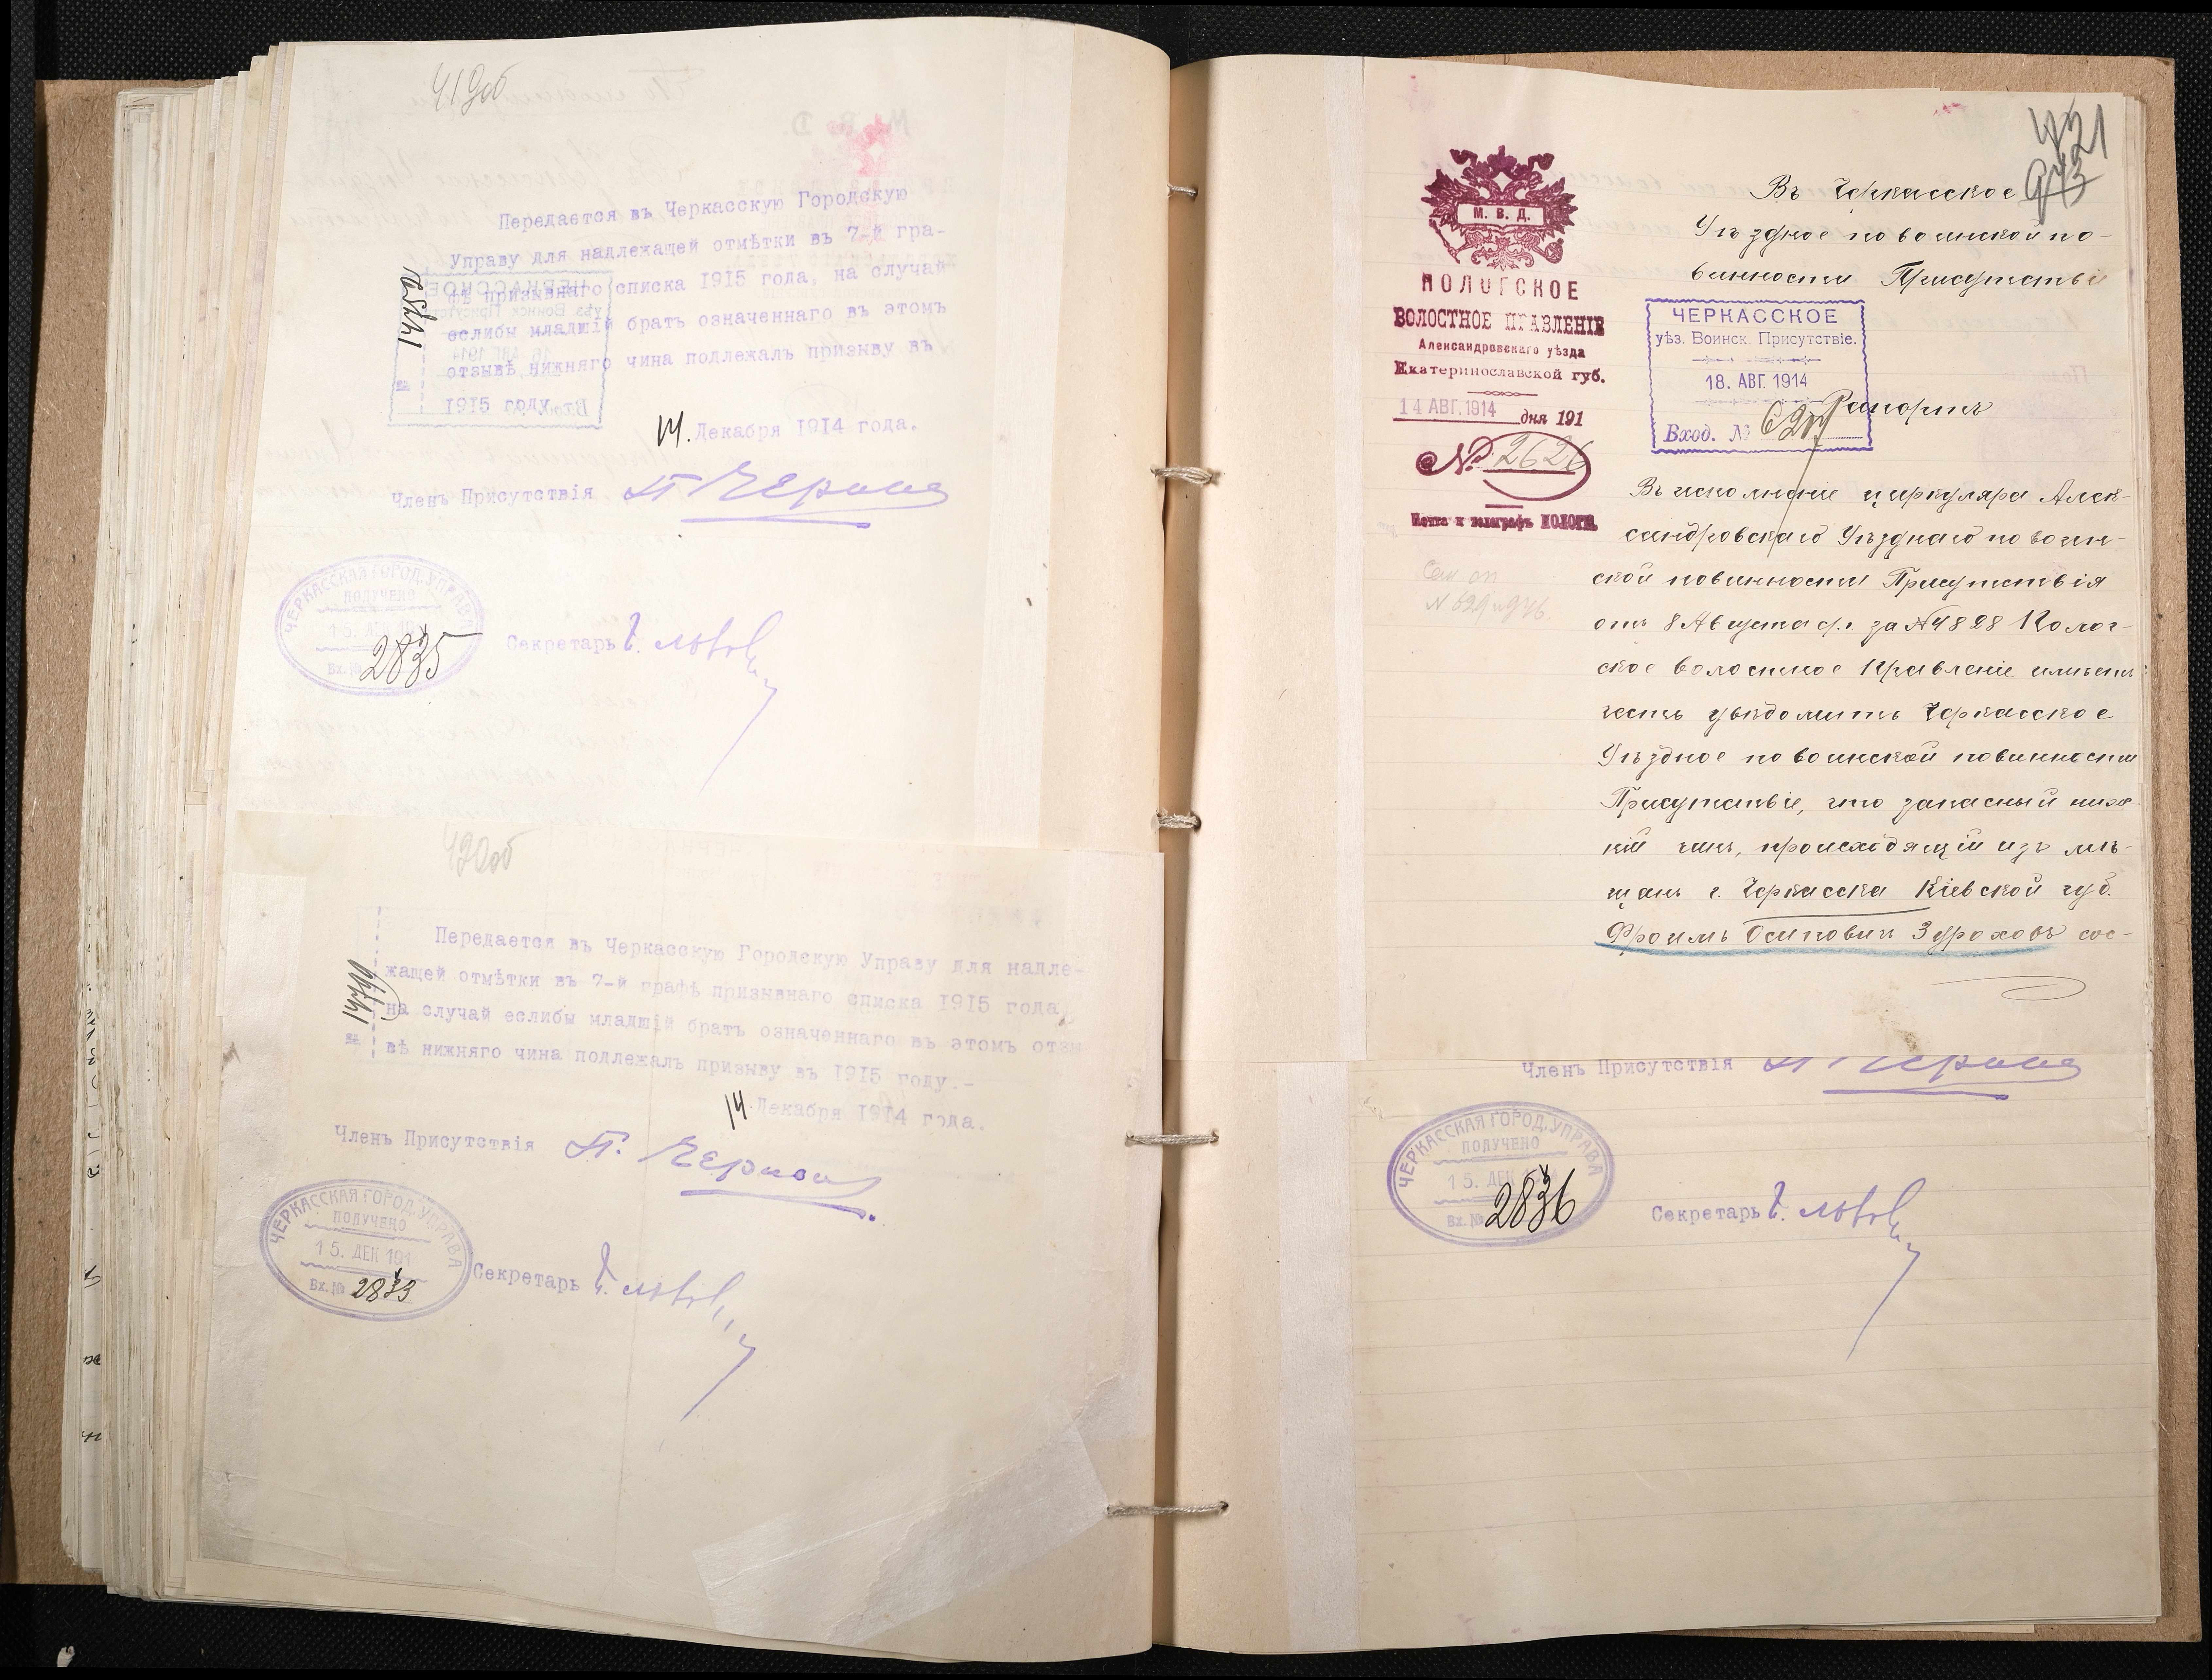 419об
Передается въ Черкасскую Городскую
Управу для надлежащей отмѣтки въ 7-й гра-
фѣ призывнаго списка 1915 года, на случай
еслибы младшій братъ означеннаго въ этомъ
отзывѣ нижняго чина подлежалъ призыву въ
1915 году.
14. Декабря 1914 года.
Членъ Присутствія
ЧЕРКАССКАЯ ГОРОД. УПРАВА
ПОЛУЧЕНО
15. ДЕК 191
Вх. № 2835
Секретарь
420об
Передается въ Черкасскую Городскую Управу для надле-
жащей отмѣтки въ 7-й графѣ призывнаго списка 1915 года,
на случай еслибы младшій братъ означеннаго въ этомъ отзы
вѣ нижняго чина подлежалъ призыву въ 1915 году.-
14. Декабря 1914 года.
Членъ Присутствія
ЧЕРКАССКАЯ ГОРОД. УПРАВА
ПОЛУЧЕНО
15. ДЕК 191
Вх. № 2833
Секретарь
421
М. В. Д.
ПОЛОГСКОЕ
ВОЛОСТНОЕ ПРАВЛЕНІЕ
Александровскаго уѣзда
Екатеринославской губ.
14 АВГ. 1914 дня 191
№ 2626
Почта и телеграфъ ПОЛОГИ
Въ Черкасское
Уѣздное по воинской по-
винности Присутствіе
ЧЕРКАССКОЕ
уѣз. Воинск. Присутствіе.
18. АВГ. 1914
Вход. №
Рапортъ
Въ исполненіе циркуляра Алек-
сандровскаго Уѣзднаго по воин-
ской повинности Присутствія
отъ 8 Августа с/г. за № 4828 Полог-
ское волостное Правленіе имѣетъ
честь увѣдомить Черкасское
Уѣздное по воинской повинности
Присутствіе, что запасный ниж-
ній чинъ, происходящій изъ мѣ-
щанъ г. Черкасска Кіевской губ.
Фроимъ Осиповичъ Зуроховъ сос-
Членъ Присутствія
ЧЕРКАССКАЯ ГОРОД. УПРАВА
ПОЛУЧЕНО
15. ДЕК 191
Вх. № 2836
Секретарь